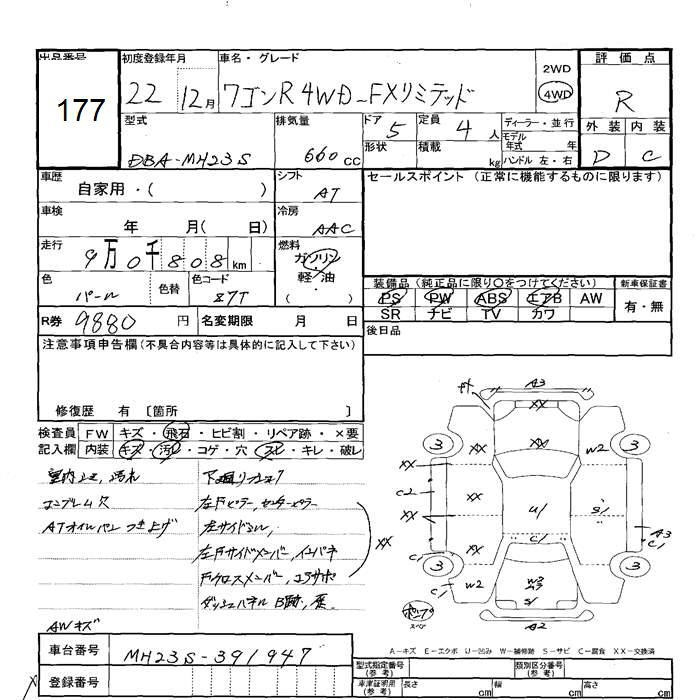 出品番号
177
初度登録年月
22 12月
車名・グレード
ワゴンR 4WD-FXリミテッド
2WD
4WD
評価点
R
外装 内装
D C
型式
DBA-MH23S
排気量
660 cc
ドア 5
形状
定員 4 人
積載 kg
ディーラー・並行
モデル年式 年
ハンドル 左・右
車歴
自家用・( )
シフト
AT
車検
年 月( 日)
冷房
AAC
走行
9万0千808km
燃料
ガソリン
軽・油
( )
色
パール
色替
色コード
Z7T
R券 9880 円
名変期限 月 日
セールスポイント (正常に機能するものに限ります)
装備品(純正品に限り○をつけてください)
PS PW ABS エアB AW
SR ナビ TV カワ
新車保証書
有・無
後日品
注意事項申告欄(不具合内容等は具体的に記入して下さい)
修復歴 有 〔箇所 〕
検査員記入欄
FW キズ・飛石・ヒビ割・リペア跡・×要
内装 キズ・汚れ・コゲ・穴・スレ・キレ・破レ
エンブレム欠
ATオイルパンつき上げ
AWキズ
左Fピラー,センターピラー
左サイドシル,
左Fサイドメンバー,インパネ
Fクロスメンバー,コアサポ
ダッシュパネル B跡,歪
XX
A3
XX
3
XX
W2
3
XX
C2
XX
XX
U1
S1
C1
C1
XX
A3
C1
3
W2
W3
S1
W2
3
A2
A-キズ E-エクボ U-凹み W-補修跡 S-サビ C-腐食 XX-交換済
車台番号 MH23S-391947
登録番号
型式指定番号(参考)
類別区分番号(参考)
車庫証明用(参考)
長さ cm 幅 cm 高さ cm